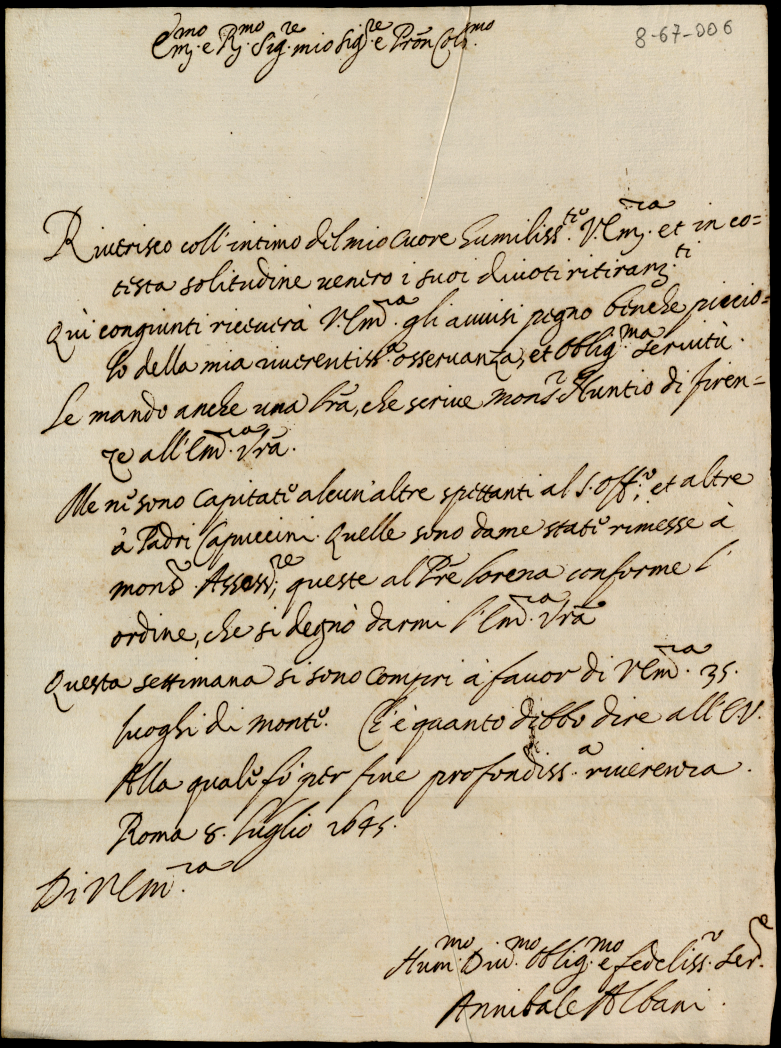 8-67-006
Em.mo e R.mo Sig.re mio Sig.re e Pron Col.mo
Riverisco coll'intimo del mio cuore humiliss.te V. Em.za et in co=
testa solitudine venero i suoi divoti ritiram.ti
Qui congiunti riceverà V. Em.za gli avvisi pegno benche piccio=
lo della mia riverentiss.a osservanza, et oblig.ma servitù.
Le mando anche una lrã, che scrive mons.r Nuntio di firen=
ze all'Em.za Vrã.
Me ne sono capitate alcun'altre spettanti al S. Off.o, et altre
à Padri Capuccini. Quelle sono da me state rimesse à
mons.r Assess.re, queste al Prê Lorena conforme l'
ordine, che si degnò darmi l'Em.za Vrã
Questa settimana si sono compri à favor di V. Em.za 35.
luoghi di monte. Ch'è quanto debbo dire all'E.V.
Alla quale fò per fine profondiss.a riverenza.
Roma 8. luglio 1645.
Di V. Em.za
Hum.mo Div.mo Oblig.mo e fedeliss.o Ser.e
Annibale Albani